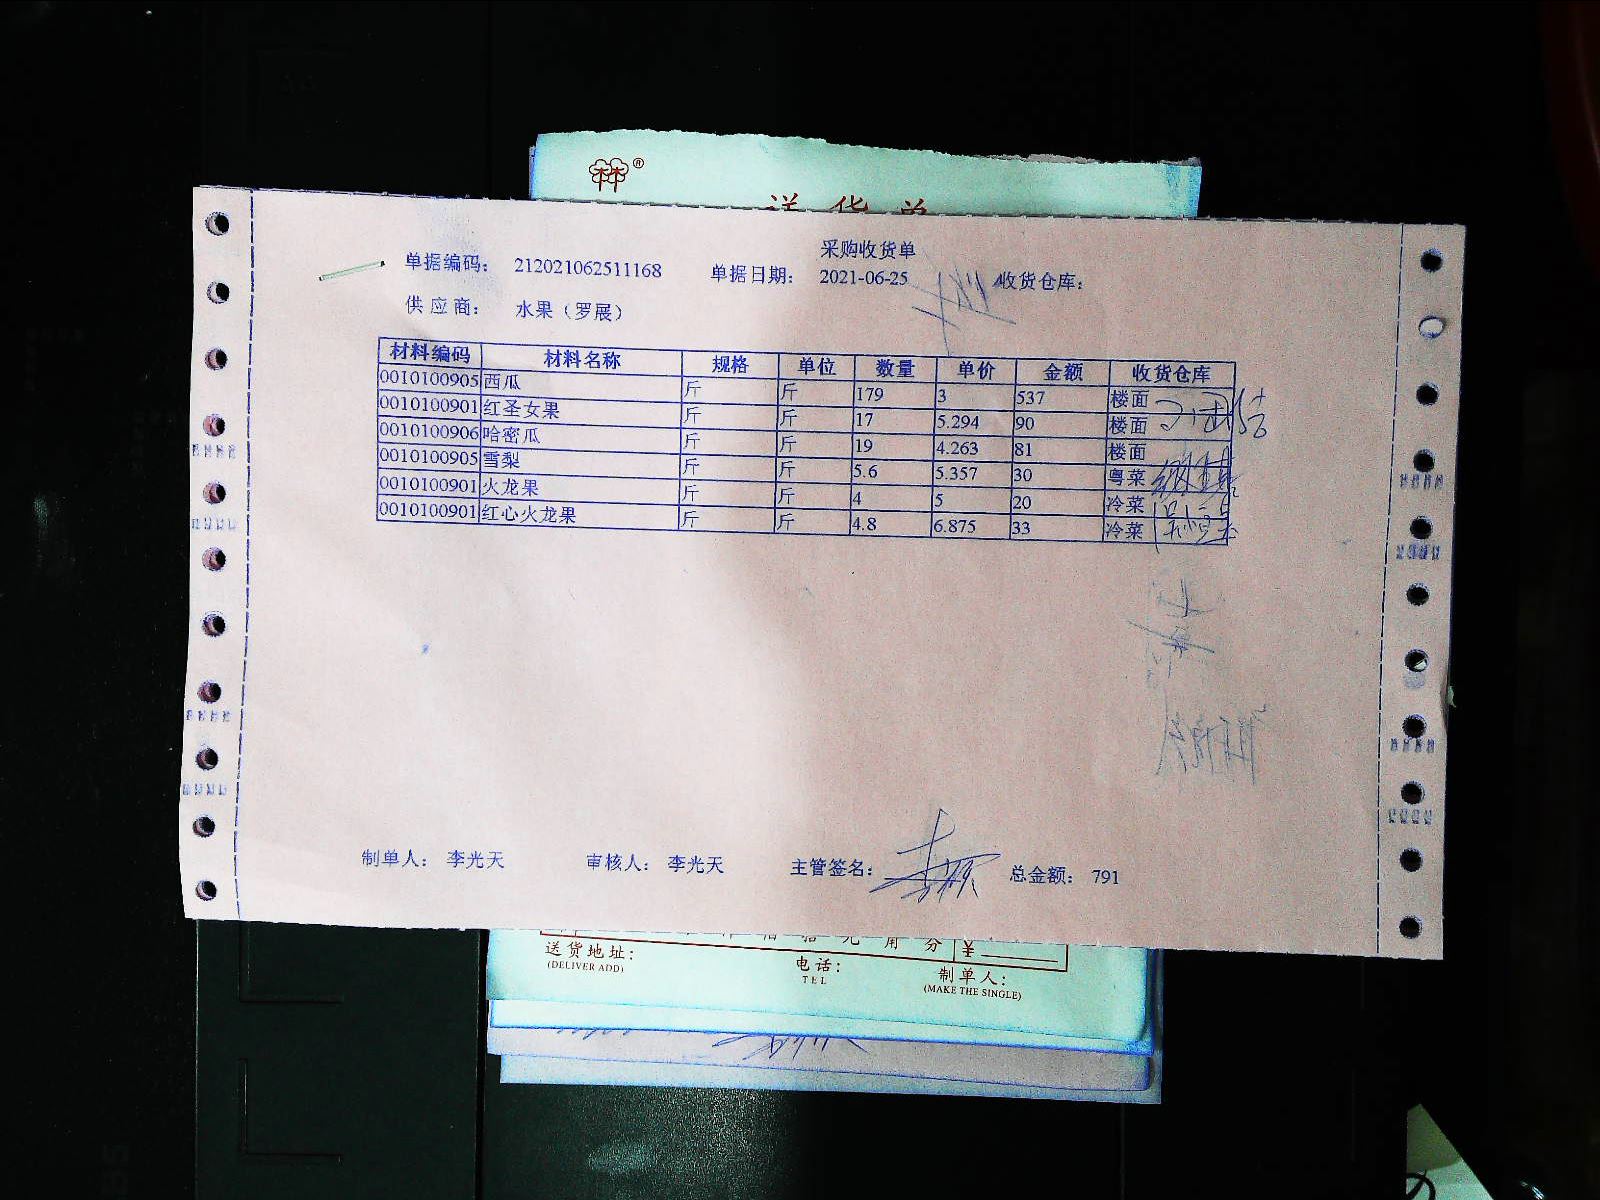 ®
送货单
采购收货单
单据编码： 212021062511168 单据日期： 2021-06-25 收货仓库：
供应商： 水果（罗展）
材料编码 材料名称 规格 单位 数量 单价 金额 收货仓库
0010100905 西瓜 斤 斤 179 3 537 楼面
0010100901 红圣女果 斤 斤 17 5.294 90 楼面
0010100906 哈密瓜 斤 斤 19 4.263 81 楼面
0010100905 雪梨 斤 斤 5.6 5.357 30 粤菜
0010100901 火龙果 斤 斤 4 5 20 冷菜
0010100901 红心火龙果 斤 斤 4.8 6.875 33 冷菜
制单人： 李光天 审核人： 李光天 主管签名： 总金额： 791
佰 拾 元 角 分 ¥
送货地址： 电话： 制单人：
(DELIVER ADD) TEL (MAKE THE SINGLE)